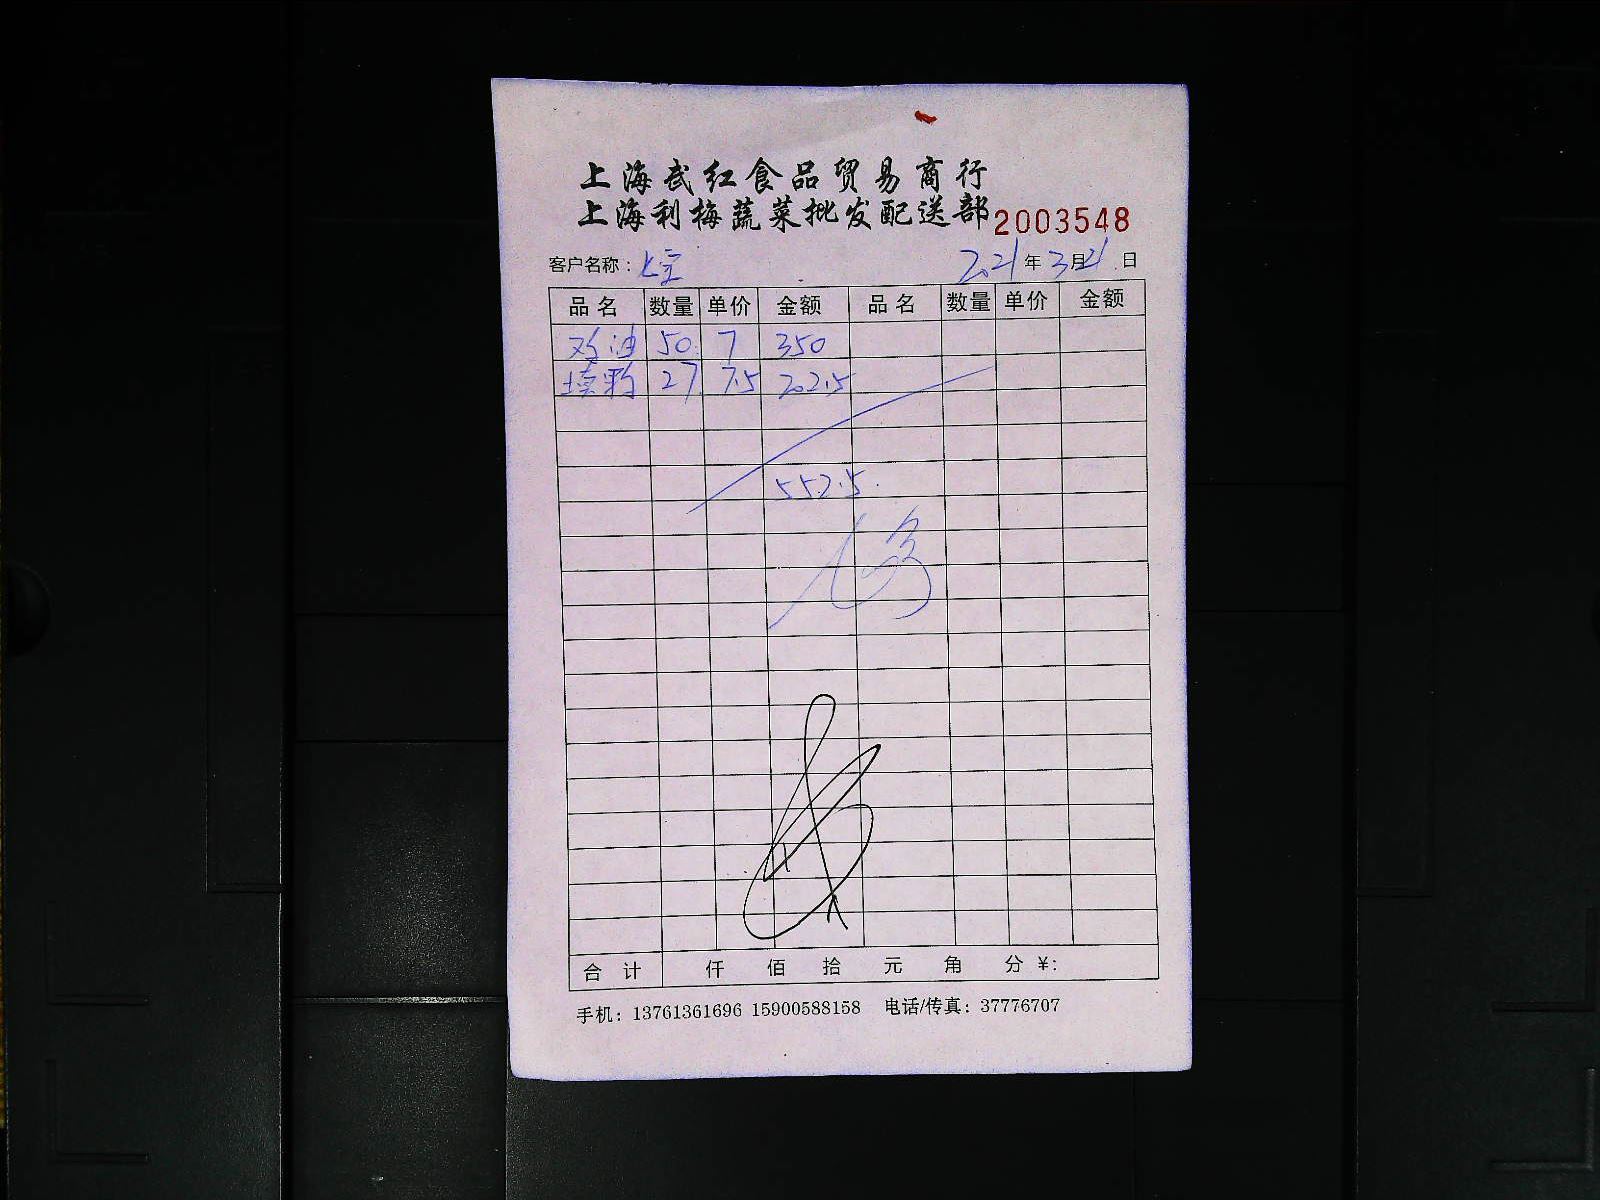 上海武红食品贸易商行
上海利梅蔬菜批发配送部 2003548
客户名称： 2021年3月21日
品名 数量 单价 金额 品名 数量 单价 金额
鸡油 50 7 350
27 7.5 202.5
552.5
合计 仟 佰 拾 元 角 分 ¥:
手机：13761361696 15900588158 电话/传真：37776707